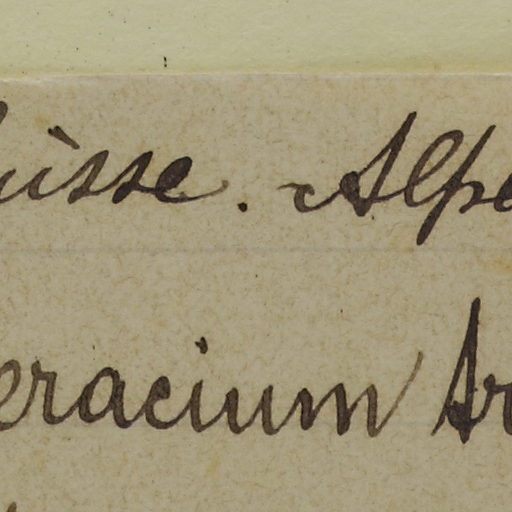 uisse. Alpe
eracium Ar